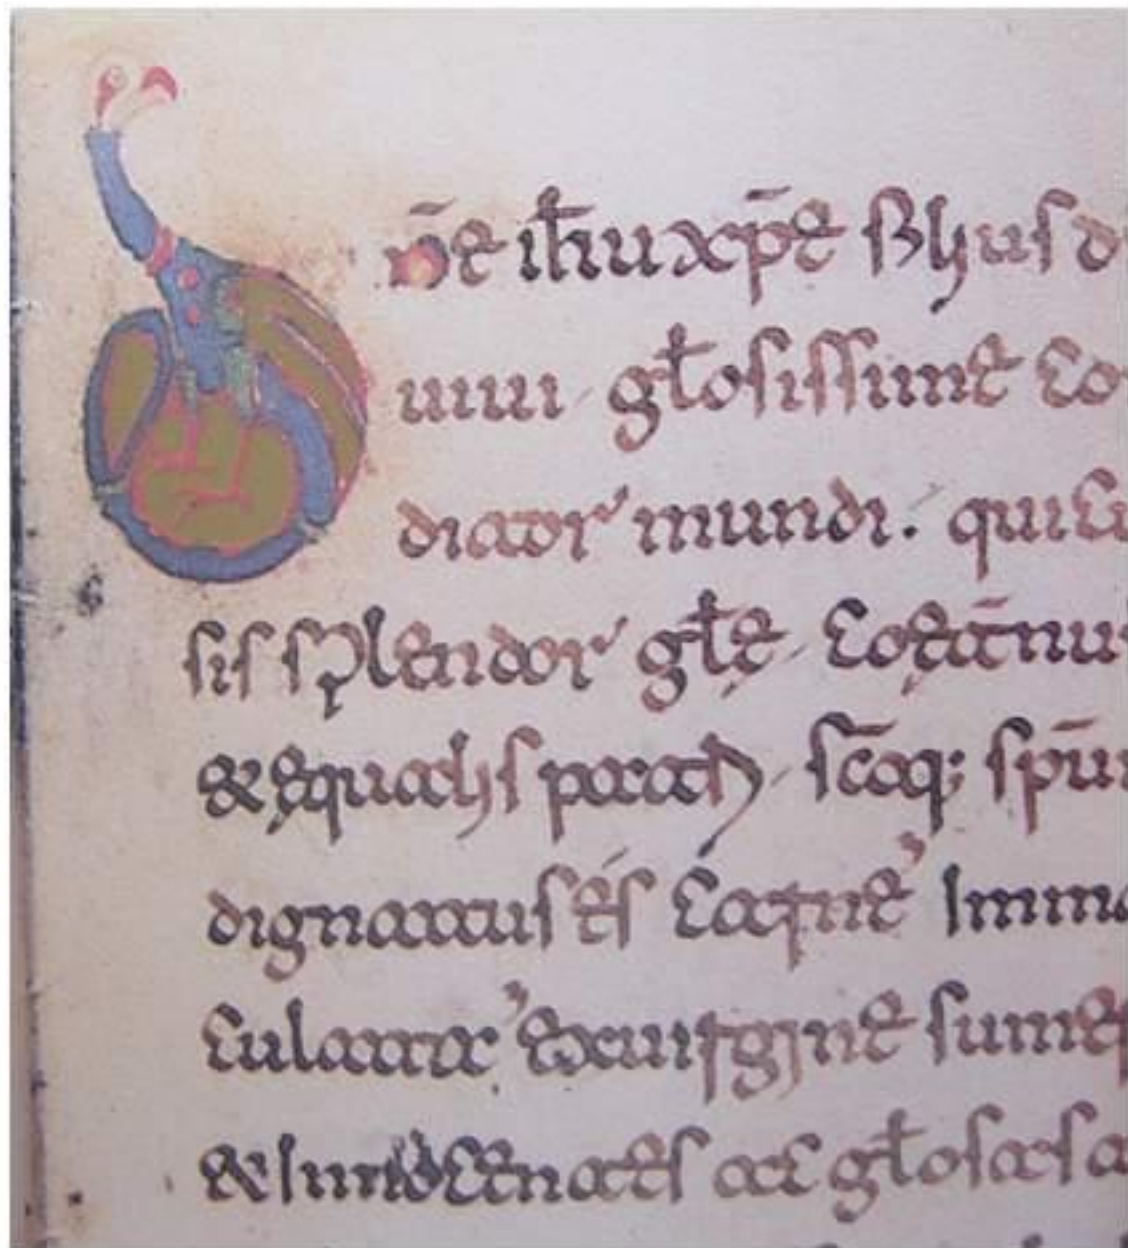 Dn̄e ih̄u xp̄e filius d
uiui gl̄osissime co
ditor mundi. qui cu
sis splendor gl̄ę coęt̄nu
& ęqualis patri sc̄oq; sp̄ui
dignatus es carne Imma
culata exuirgine sume
& ac gl̄osas a